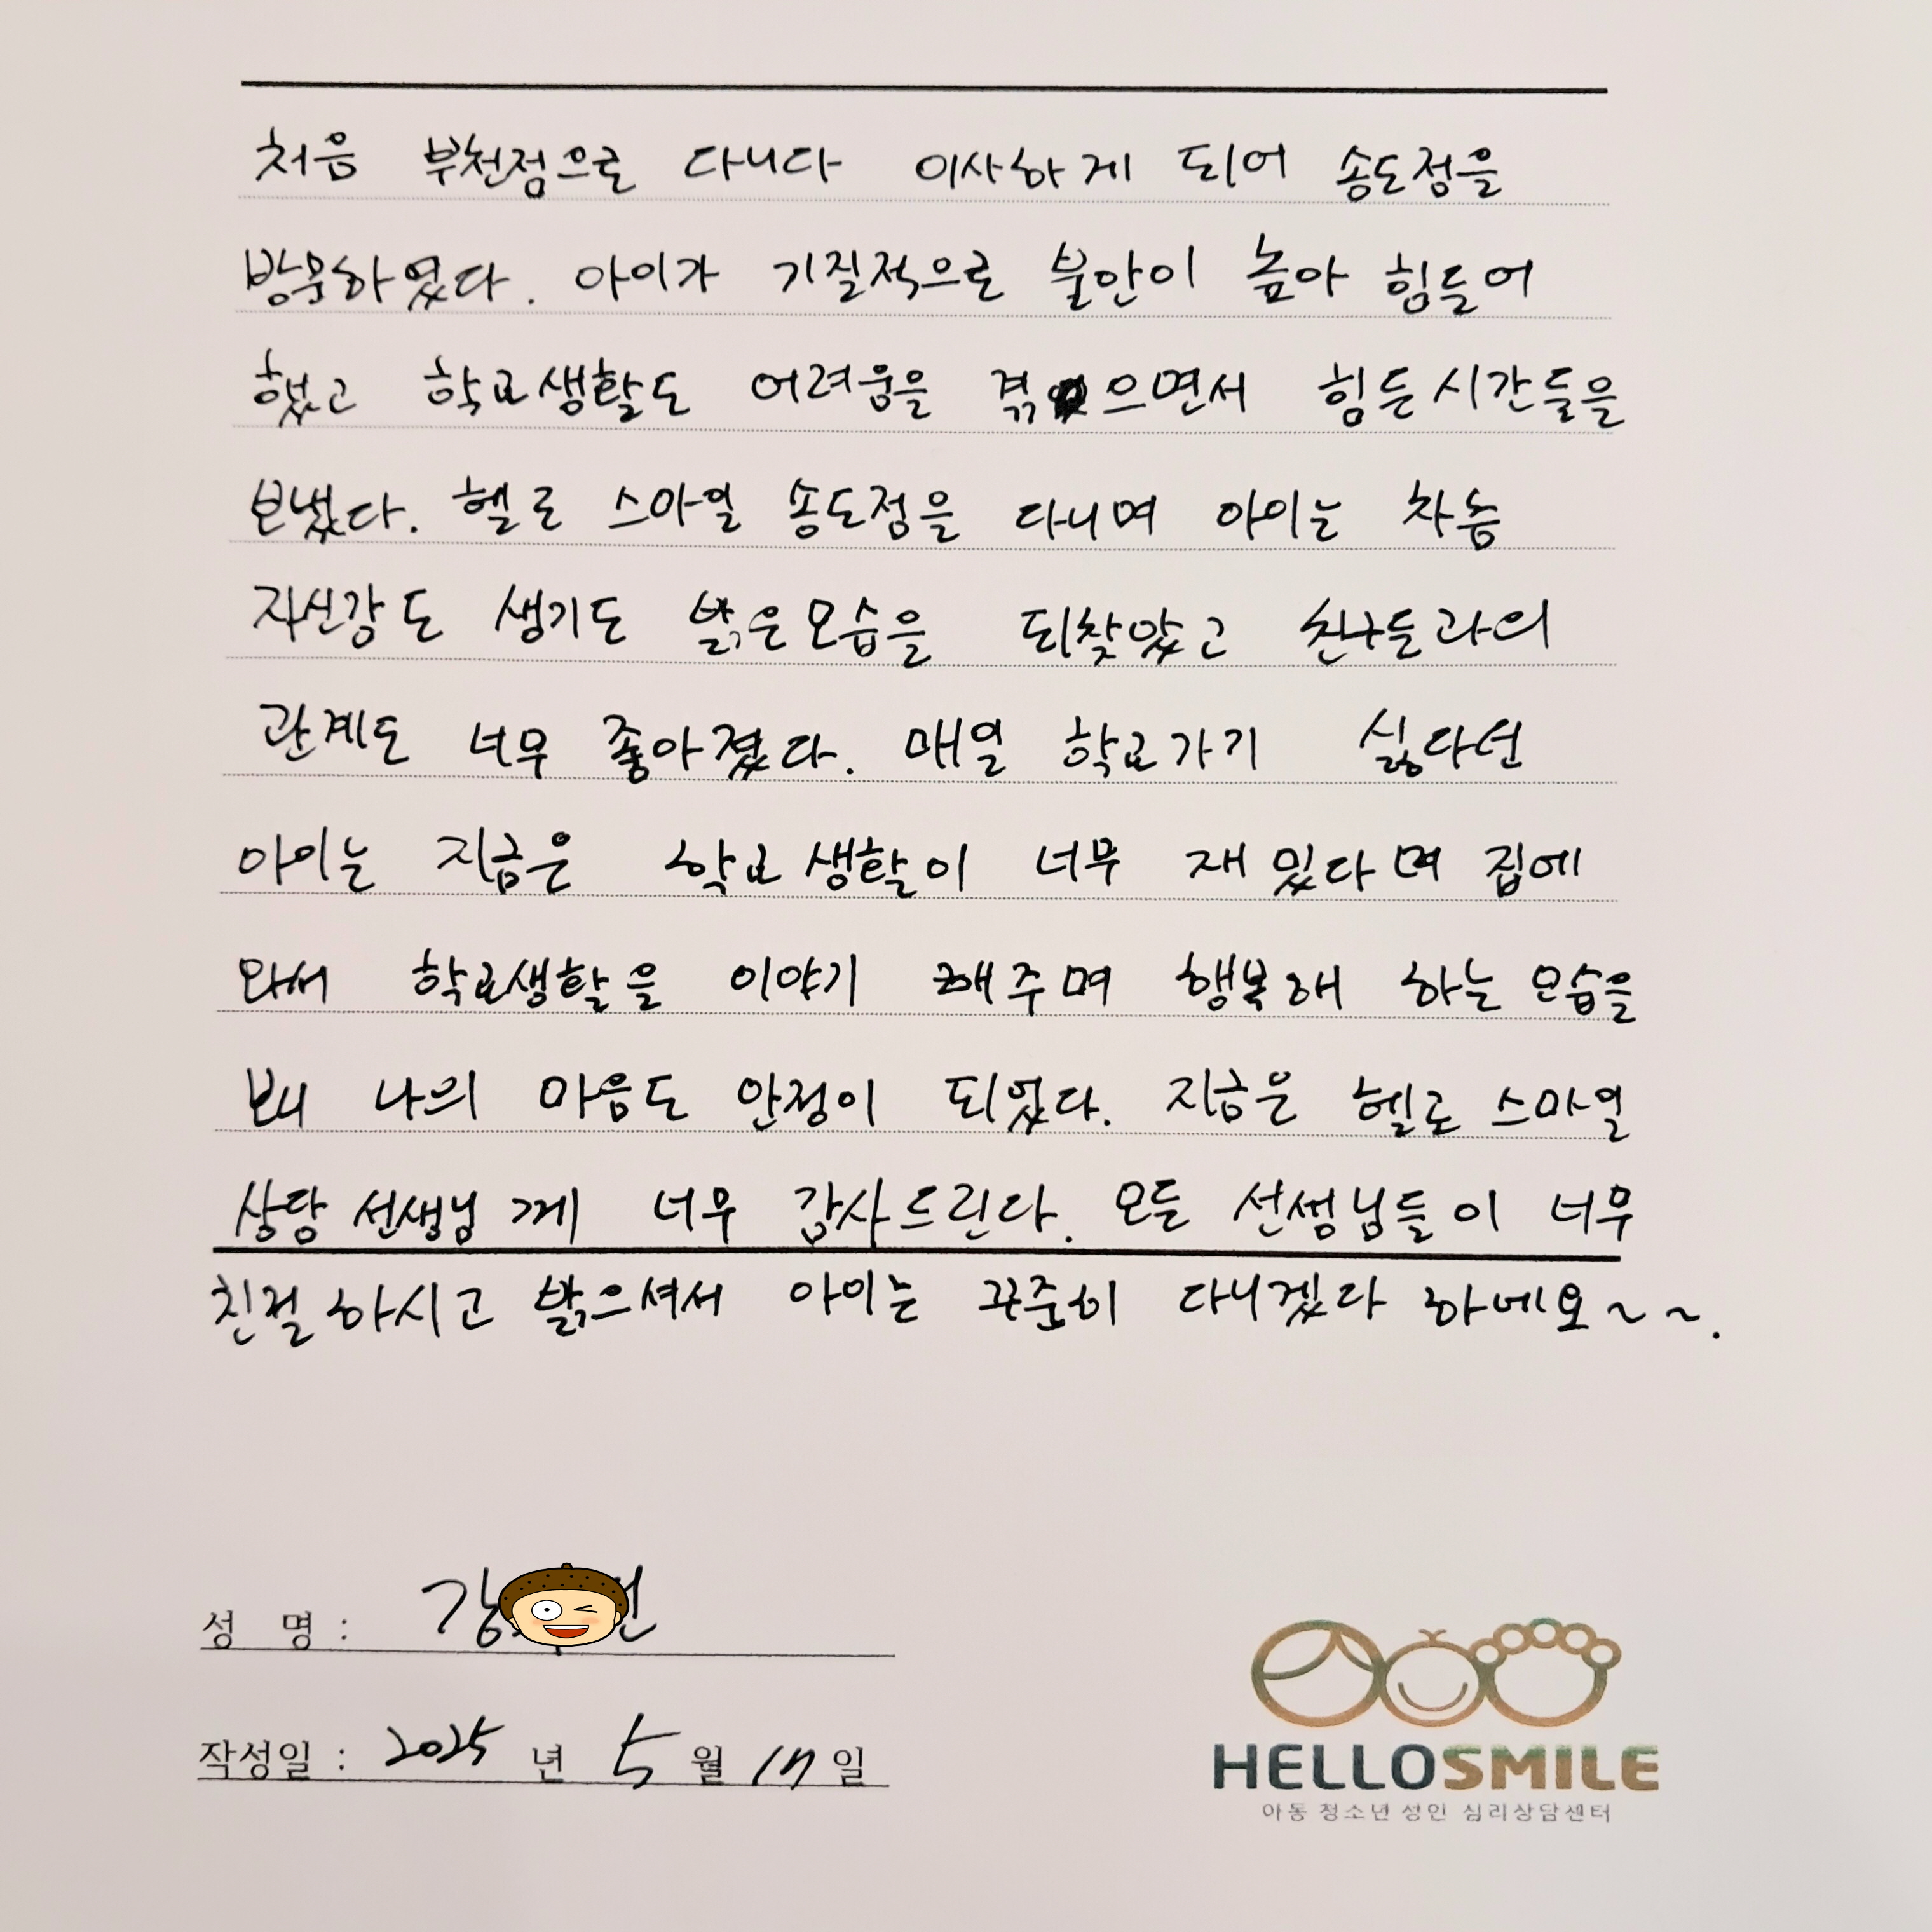 처음 부천점으로 다니다 이사하게 되어 송도점을
방문하였다. 아이가 기질적으로 불안이 높아 힘들어
했고 학교생활도 어려움을 겪으면서 힘든시간들을
보냈다. 헬로 스마일 송도점을 다니며 아이는 차츰
자신감도 생기도 밝은모습을 되찾았고 친구들과의
관계도 너무 좋아졌다. 매일 학교가기 싫다던
아이는 지금은 학교생활이 너무 재밌다며 집에
와서 학교생활을 이야기 해주며 행복해 하는 모습을
봬 나의 마음도 안정이 되었다. 지금은 헬로 스마일
상담 선생님께 너무 감사드린다. 모든 선생님들이 너무
친절하시고 밝으셔서 아이는 꾸준히 다니겠다 하네요~~.
성 명 : 강
작성일 : 2025 년 5 월 17 일
HELLOSMILE
아동 청소년 성인 심리상담센터